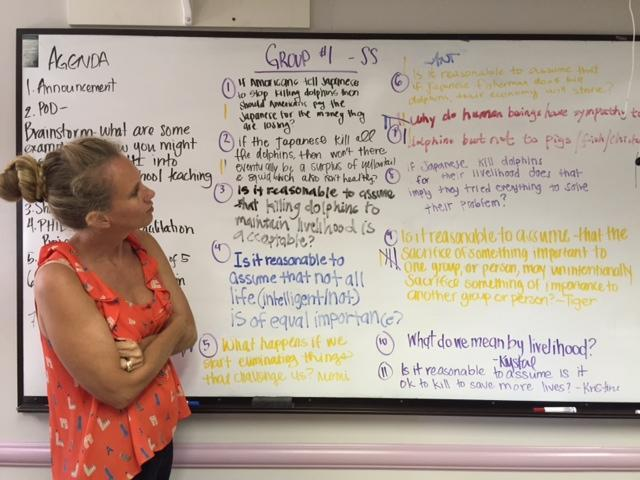 AGENDA
1. Announcement
2. POD-
Brainstorm: what are some
you might
into
school teaching
4. PHIL
5.
of 5
GROUP #1 - SS
1 If Americans tell Japanese
to stop killing dolphins then
should Americans pay the
Japanese for the money they
are losing?
2 if the Japanese kill all
the dolphins, then won't there
eventually be a surplus of yellowtail
& squid which also isn't healthy?
3 Is it reasonable to assume
that killing dolphins to
maintain livelihood is
acceptable?
4 Is it reasonable to
assume that not all
life (intelligent/not)
is of equal importance?
5 What happens if we
start eliminating things
that challenge us? Nomi
6 Is it reasonable to assume that
if Japanese fisherman does kill
dolphin, their economy will
7 Why do human beings have sympathy to
dolphins but not to pigs/fish/
8 if Japanese kill dolphins
for their livelihood does that
imply they tried everything to solve
their problem?
9 Is it reasonable to assume that the
sacrifice of something important to
one group, or person, may unintentionally
sacrifice something of importance to
another group or person? - Tiger
10 What do we mean by livelihood?
- Krystal
11 Is it reasonable to assume is it
ok to kill to save more lives? - Kristine